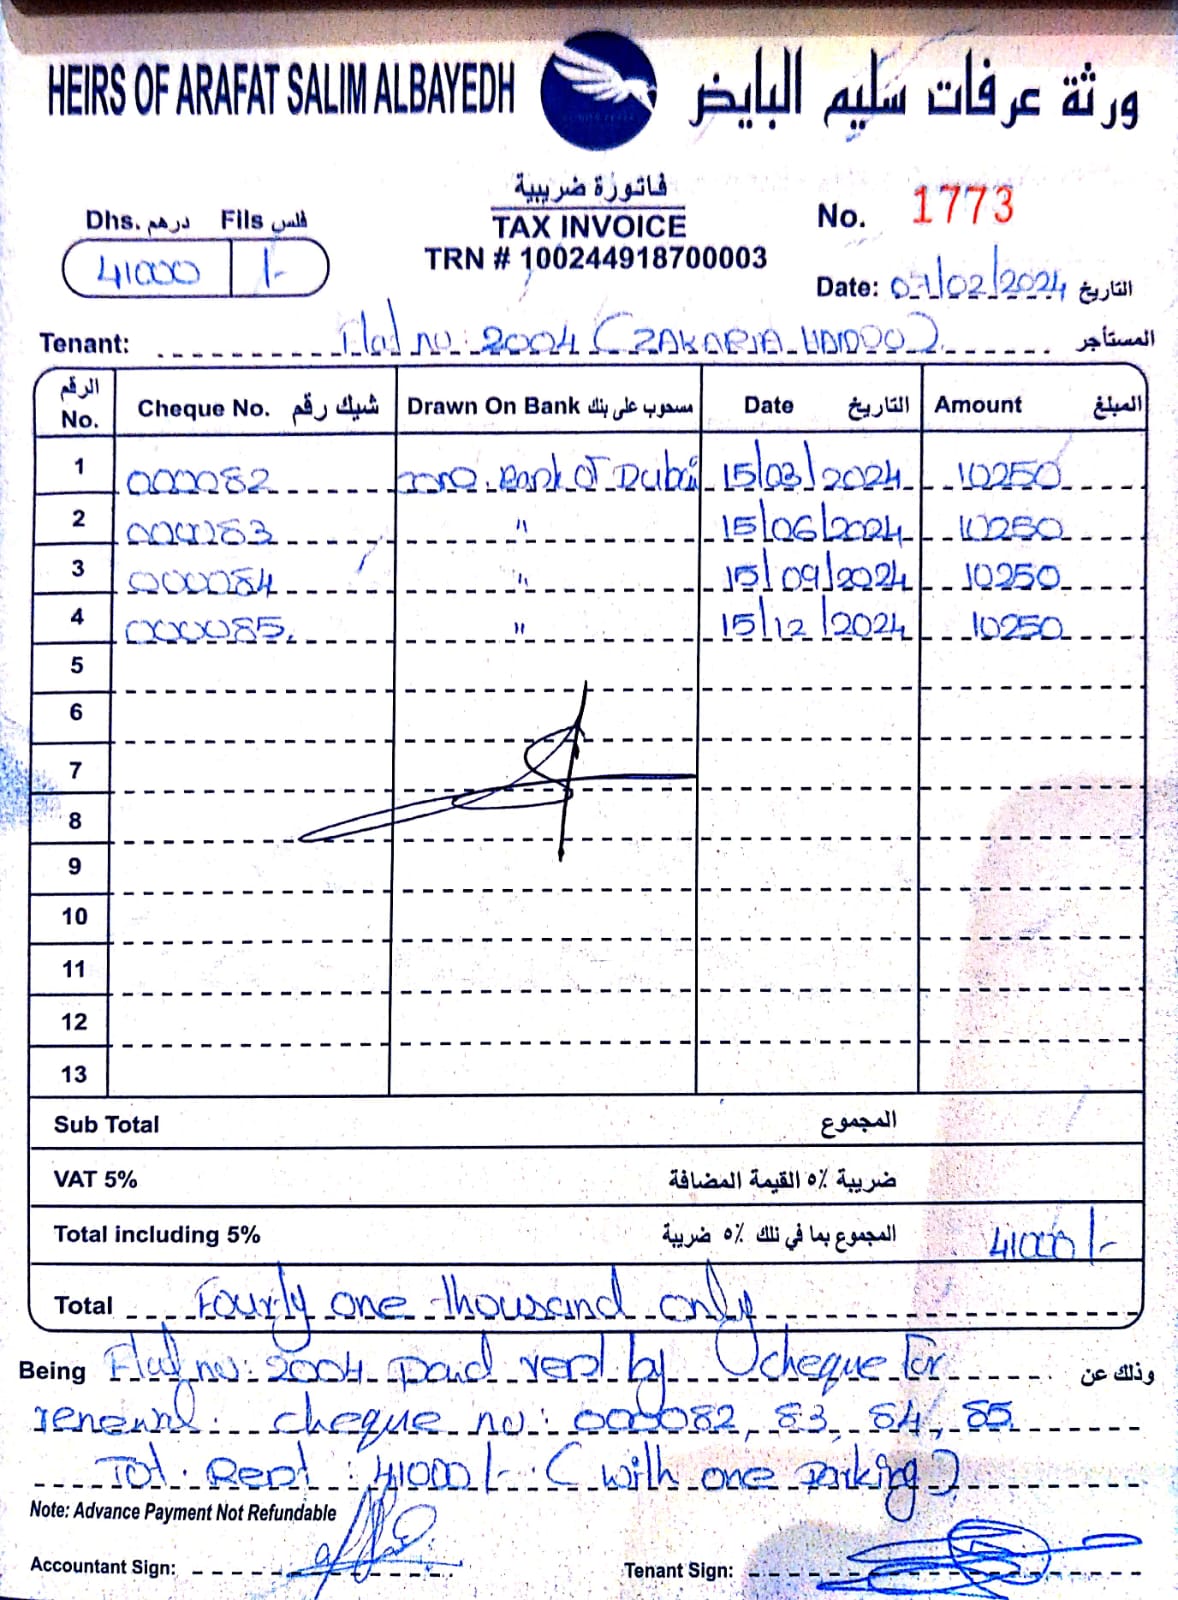 HEIRS OF ARAFAT SALIM ALBAYEDH ورثة عرفات سليم البايض
فاتورة ضريبية
TAX INVOICE
TRN # 100244918700003
Dhs. درهم Fils فلس
41000 /-
No. 1773
Date: 07/02/2024 التاريخ
Tenant: Flat no: 2004 (ZAKARIA) المستأجر
الرقم No. Cheque No. شيك رقم Drawn On Bank مسحوب على بنك Date التاريخ Amount المبلغ
1 000082 Bank of Dubai 15/03/2024 10250
2 000083 " 15/06/2024 10250
3 000084 " 15/09/2024 10250
4 000085. " 15/12/2024 10250
5
6
7
8
9
10
11
12
13
Sub Total المجموع
VAT 5% ضريبة ٥٪ القيمة المضافة
Total including 5% المجموع بما في ذلك ٥٪ ضريبة 41000/-
Total Fourty one thousand only
Being Flat no: 2004 paid rent by cheque for وذلك عن
renewal. cheque no: 000082, 83, 84, 85
Tot. Rent : 41000/- (with one Parking)
Note: Advance Payment Not Refundable
Accountant Sign: Tenant Sign: